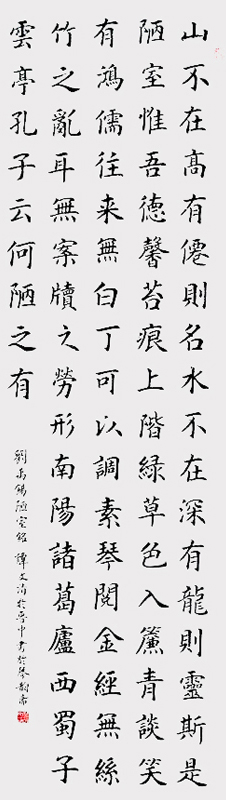 山不在髙有僊則名水不在深有龍則靈斯是
陋室惟吾德馨苔痕上階綠草色入簾青談笑
有鴻儒往来無白丁可以調素琴閱金經無絲
竹之亂耳無案牘之勞形南陽諸葛廬西蜀子
雲亭孔子云何陋之有
劉禹錫陋室銘 譚文